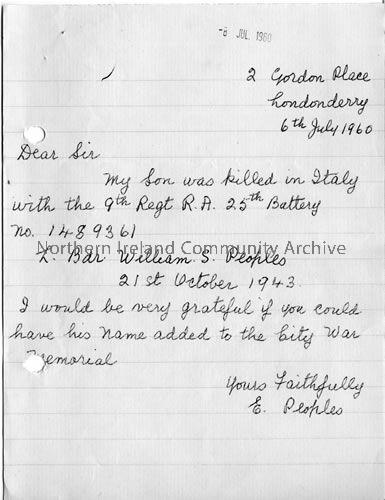 -8 JUL 1960
2 Gordon Place
Londonderry
6th July 1960
Dear Sir
My Son was killed in Italy
with the 9th Regt R.A. 25th Battery
No. 1489361
Northern Ireland Community Archive
L. Bdr William S. Peoples
21st October 1943.
I would be very grateful if you could
have his name added to the City War
Memorial
Yours Faithfully
E. Peoples